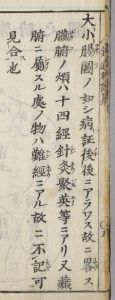 大小腸圖ノ如シ病証後後ニアラワス故ニ畧ス
臓腑ノ煩ハ十四經針灸聚英等ニアリ又藏
腑ニ屬スル處ノ物ハ難經ニアル故ニ不記可
見合也